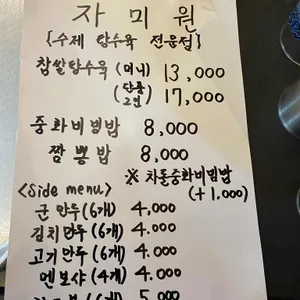 자미원
[수제 탕수육 전문점]
찹쌀탕수육 (미니) 13,000
(단품 2인) 17,000
중화비빔밥 8,000
짬뽕밥 8,000
※ 차돌중화비빔밥
(+1,000)
<Side menu>
군만두(6개) 4,000
김치만두(6개) 4.000
고기만두(6개) 4.000
멘보샤(4개) 4.000
5.000